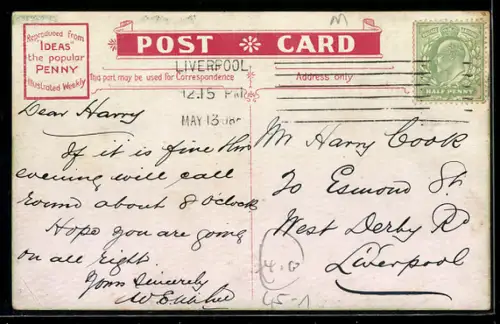 Reproduced from
"IDEAS"
the popular
PENNY
Illustrated Weekly
M
POST CARD
This part may be used for Correspondence
Address only
LIVERPOOL
12.15 PM
MAY 13 08
HALF PENNY
Dear Harry
If it is fine this
evening will call
round about 8 o'clock
Hope you are going
on all right.
Yours Sincerely
Mr Harry Cook
20 Esmond St
West Derby Rd
Liverpool